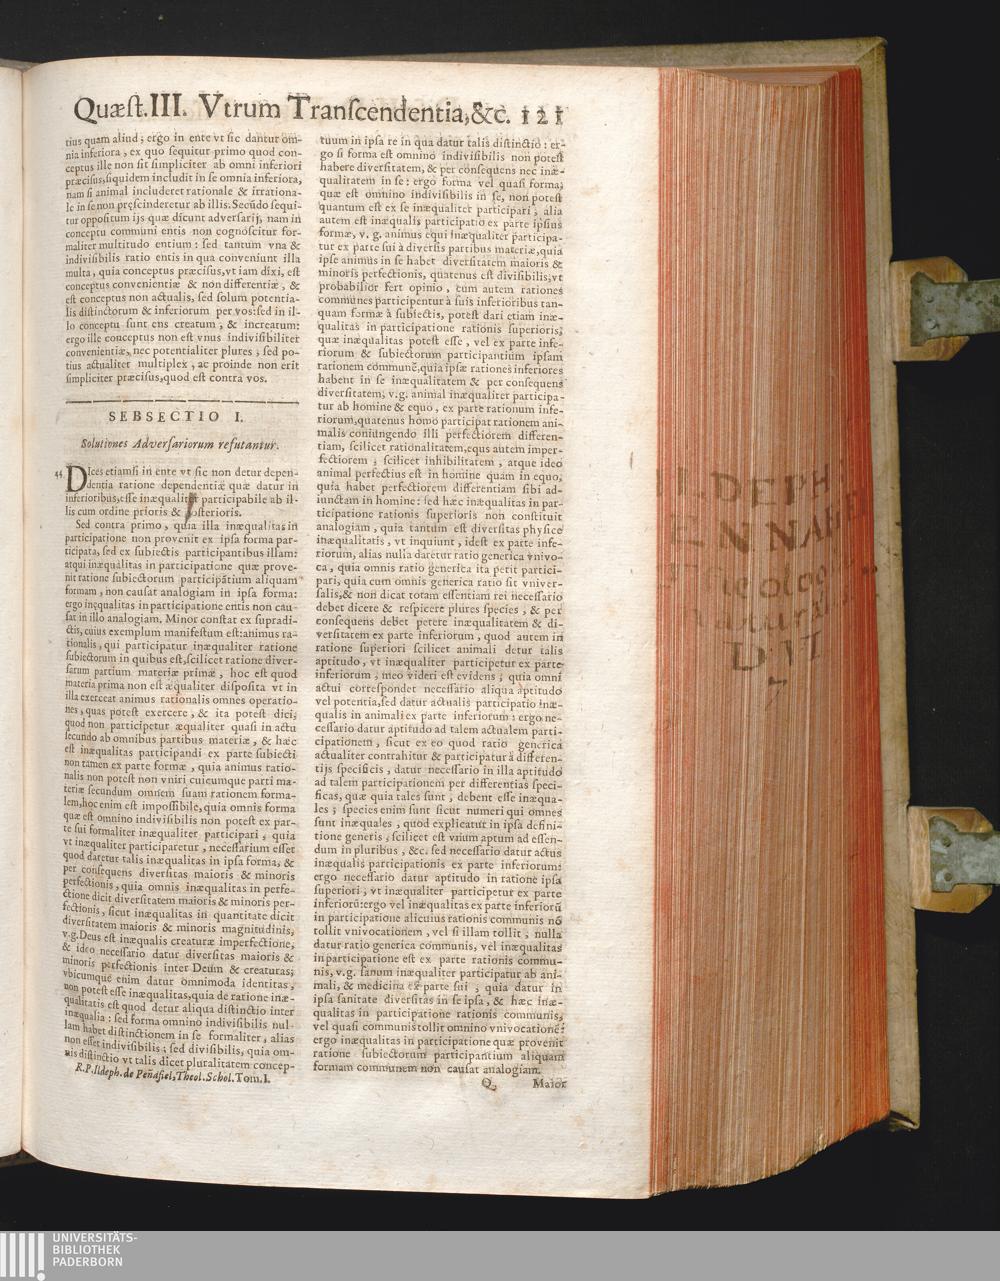 Quæst. III. Vtrum Transcendentia, &c. 121
tius quam aliud; ergo in ente vt sic dantur om-
nia inferiora, ex quo sequitur primo quod con-
ceptus ille non sit simpliciter ab omni inferiori
præcisus, siquidem includit in se omnia inferiora,
nam si animal includeret rationale & irrationa-
le in se non præscinderetur ab illis. Secūdo sequi-
tur oppositum ijs quæ dicunt adversarij, nam in
conceptu communi entis non cognoscitur for-
maliter multitudo entium: sed tantum vna &
indivisibilis ratio entis in qua conveniunt illa
multa, quia conceptus præcisus, vt iam dixi, est
conceptus convenientiæ & non differentiæ, &
est conceptus non actualis, sed solum potentia-
lis distinctorum & inferiorum per vos: sed in il-
lo conceptu sunt ens creatum, & increatum:
ergo ille conceptus non est vnus indivisibiliter
convenientiæ, nec potentialiter plures, sed po-
tius actualiter multiplex, ac proinde non erit
simpliciter præcisus, quod est contra vos.
SEBSECTIO I.
Solutiones Adversariorum refutantur.
44. Dices etiamsi in ente vt sic non detur depen-
dentia ratione dependentiæ quæ datur in
inferioribus, esse inæqualiter participabile ab il-
lis cum ordine prioris & posterioris.
Sed contra primo, quia illa inæqualitas in
participatione non provenit ex ipsa forma par-
ticipata, sed ex subiectis participantibus illam:
atqui inæqualitas in participatione quæ prove-
nit ratione subiectorum participātium aliquam
formam, non causat analogiam in ipsa forma:
ergo inęqualitas in participatione entis non cau-
sat in illo analogiam. Minor constat ex supradi-
ctis, cuius exemplum manifestum est: animus ra-
tionalis, qui participatur inæqualiter ratione
subiectorum in quibus est, scilicet ratione diver-
sarum partium materiæ primæ, hoc est quod
materia prima non est æqualiter disposita vt in
illa exerceat animus rationalis omnes operatio-
nes, quas potest exercere, & ita potest dici,
quod non participetur æqualiter quasi in actu
secundo ab omnibus partibus materiæ, & hæc
est inæqualitas participandi ex parte subiecti
non tamen ex parte formæ, quia animus ratio-
nalis non potest non vniri cuicumque parti ma-
teriæ secundum omnem suam rationem forma-
lem, hoc enim est impossibile, quia omnis forma
quæ est omnino indivisibilis non potest ex par-
te sui formaliter inæqualiter participari, quia
vt inæqualiter participaretur, necessarium esset
quod daretur talis inæqualitas in ipsa forma, &
per consequens diversitas maioris & minoris
perfectionis, quia omnis inæqualitas in perfe-
ctione dicit diversitatem maioris & minoris per-
fectionis, sicut inæqualitas in quantitate dicit
diversitatem maioris & minoris magnitudinis,
v.g. Deus est inæqualis creaturæ imperfectione,
& ideo necessario datur diversitas maioris &
minoris perfectionis inter Deum & creaturas;
vbicumque enim datur omnimoda identitas,
non potest esse inæqualitas, quia de ratione inæ-
qualitatis est quod detur aliqua distinctio inter
inæqualia: sed forma omnino indivisibilis nul-
lam habet distinctionem in se formaliter, alias
non esset indivisibilis; sed divisibilis, quia om-
nis distinctio vt talis dicet pluralitatem concep-
R.P. Ildeph. de Peñafiel, Theol. Schol. Tom. I.
tuum in ipsa re in qua datur talis distinctio: er-
go si forma est omnino indivisibilis non potest
habere diversitatem, & per consequens nec inæ-
qualitatem in se: ergo forma vel quasi forma;
quæ est omnino indivisibilis in se, non potest
quantum est ex se inæqualiter participari; alia
autem est inæqualis participatio ex parte ipsius
formæ, v. g. animus equi inæqualiter participa-
tur ex parte sui à diversis partibus materiæ, quia
ipse animus in se habet diversitatem maioris &
minoris perfectionis, quatenus est divisibilis, vt
probabilior fert opinio, cum autem rationes
communes participentur à suis inferioribus tan-
quam formæ à subiectis, potest dari etiam inæ-
qualitas in participatione rationis superioris;
quæ inæqualitas potest esse, vel ex parte infe-
riorum & subiectorum participantium ipsam
rationem communē, quia ipsæ rationes inferiores
habent in se inæqualitatem & per consequens
diversitatem, v.g. animal inæqualiter participa-
tur ab homine & equo, ex parte rationum infe-
riorum, quatenus homo participat rationem ani-
malis coniungendo illi perfectiorem differen-
tiam, scilicet rationalitatem, equs autem imper-
fectiorem; scilicet inhibilitatem, atque ideo
animal perfectius est in homine quam in equo,
quia habet perfectiorem differentiam sibi ad-
iunctam in homine: sed hæc inæqualitas in par-
ticipatione rationis superioris non constituit
analogiam, quia tantum est diversitas physicè
inæqualitatis, vt inquiunt, idest ex parte infe-
riorum, alias nulla daretur ratio generica vnivo-
ca, quia omnis ratio generica ita petit partici-
pari, quia cum omnis generica ratio sit vniver-
salis, & non dicat totam essentiam rei necessario
debet dicere & respicere plures species, & per
consequens debet petere inæqualitatem & di-
versitatem ex parte inferiorum, quod autem in
ratione superiori scilicet animali detur talis
aptitudo, vt inæqualiter participetur ex parte
inferiorum, meo videri est evidens; quia omni
actui correspondet necessario aliqua aptitudo
vel potentia, sed datur actualis participatio inæ-
qualis in animali ex parte inferiorum: ergo ne-
cessario datur aptitudo ad talem actualem parti-
cipationem, sicut ex eo quod ratio generica
actualiter contrahitur & participatur à differen-
tijs specificis, datur necessario in illa aptitudo
ad talem participationem per differentias speci-
ficas, quæ quia tales sunt, debent esse inæqua-
les; species enim sunt sicut numeri qui omnes
sunt inæquales, quod explicatur in ipsa defini-
tione generis, scilicet est vnum aptum ad essen-
dum in pluribus, &c. sed necessario datur actus
inæqualis participationis ex parte inferiorum:
ergo necessario datur aptitudo in ratione ipsa
superiori; vt inæqualiter participetur ex parte
inferiorū: ergo vel inæqualitas ex parte inferiorū
in participatione alicuius rationis communis nō
tollit vnivocationem, vel si illam tollit, nulla
datur ratio generica communis, vel inæqualitas
in participatione est ex parte rationis commu-
nis, v.g. sanum inæqualiter participatur ab ani-
mali, & medicina ex parte sui; quia datur in
ipsa sanitate diversitas in se ipsa, & hæc inæ-
qualitas in participatione rationis communis,
vel quasi communis tollit omnino vnivocationē:
ergo inæqualitas in participatione quæ provenit
ratione subiectorum participantium aliquam
formam communem non causat analogiam.
Q Maior
UNIVERSITÄTS-
BIBLIOTHEK
PADERBORN